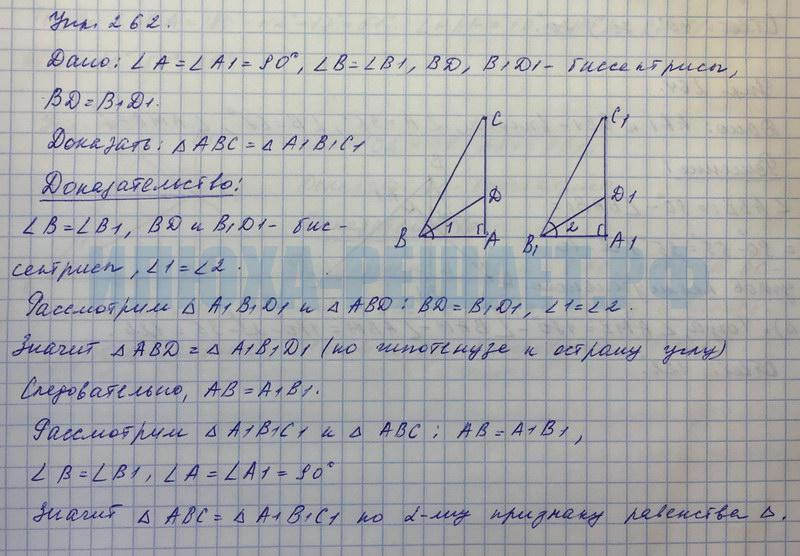 Упр. 262.
Дано: ∠A=∠A1=90°, ∠B=∠B1, BD, B1D1 - биссектрисы,
BD=B1D1.
Доказать: △ABC=△A1B1C1
Доказательство:
∠B=∠B1, BD и B1D1 - бис-
сектрисы, ∠1=∠2.
Рассмотрим △A1B1D1 и △ABD: BD=B1D1, ∠1=∠2.
Значит △ABD=△A1B1D1 (по гипотенузе и острому углу)
Следовательно, AB=A1B1.
Рассмотрим △A1B1C1 и △ABC: AB=A1B1,
∠B=∠B1, ∠A=∠A1=90°
Значит △ABC=△A1B1C1 по 2-му признаку равенства △.
C
D
B
1
A
C1
D1
B1
2
A1